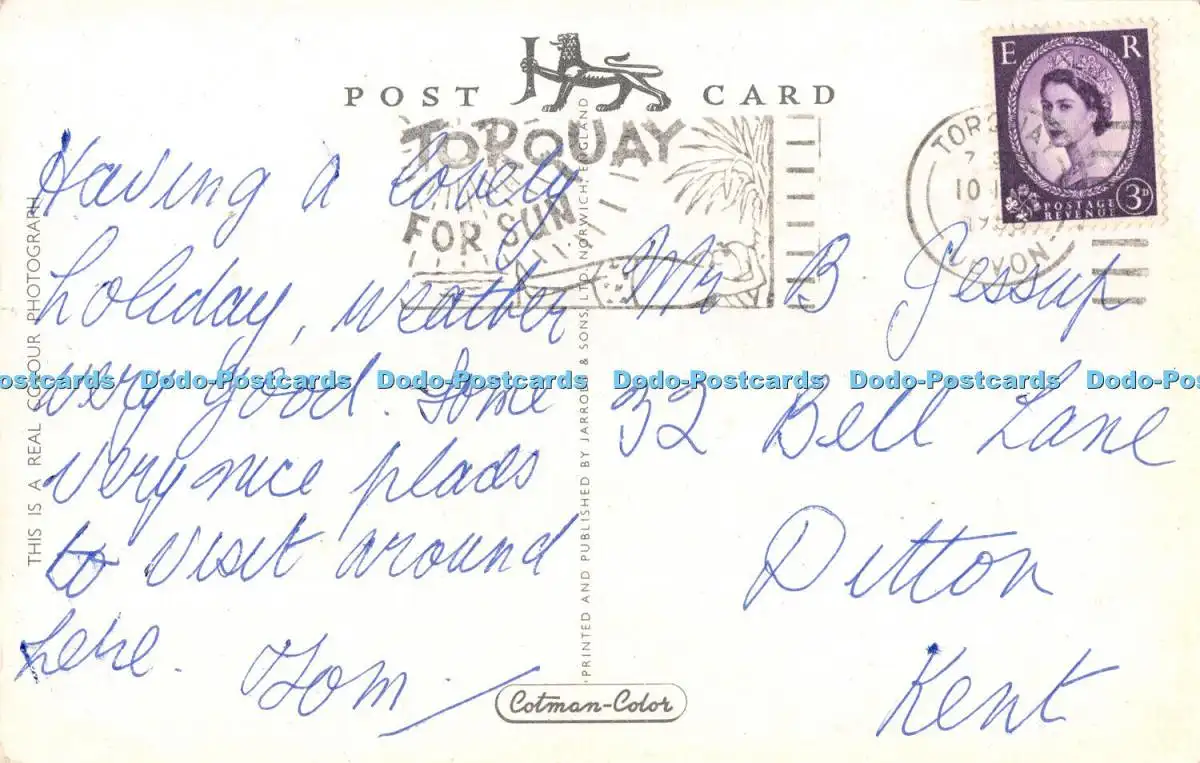 POST CARD
TORQUAY
FOR SUN
E R
3D
POSTAGE
REVENUE
TORQUAY
DEVON
Having a lovely
holiday, weather
very good. Some
very nice places
to visit around
here. Tom
Mr B Jessup
32 Bell Lane
Ditton
Kent
THIS IS A REAL COLOUR PHOTOGRAPH
PRINTED AND PUBLISHED BY JARROLD & SONS LTD. NORWICH, ENGLAND
Cotman-Color
Dodo-Postcards Dodo-Postcards Dodo-Postcards Dodo-Postcards Dodo-Postcards